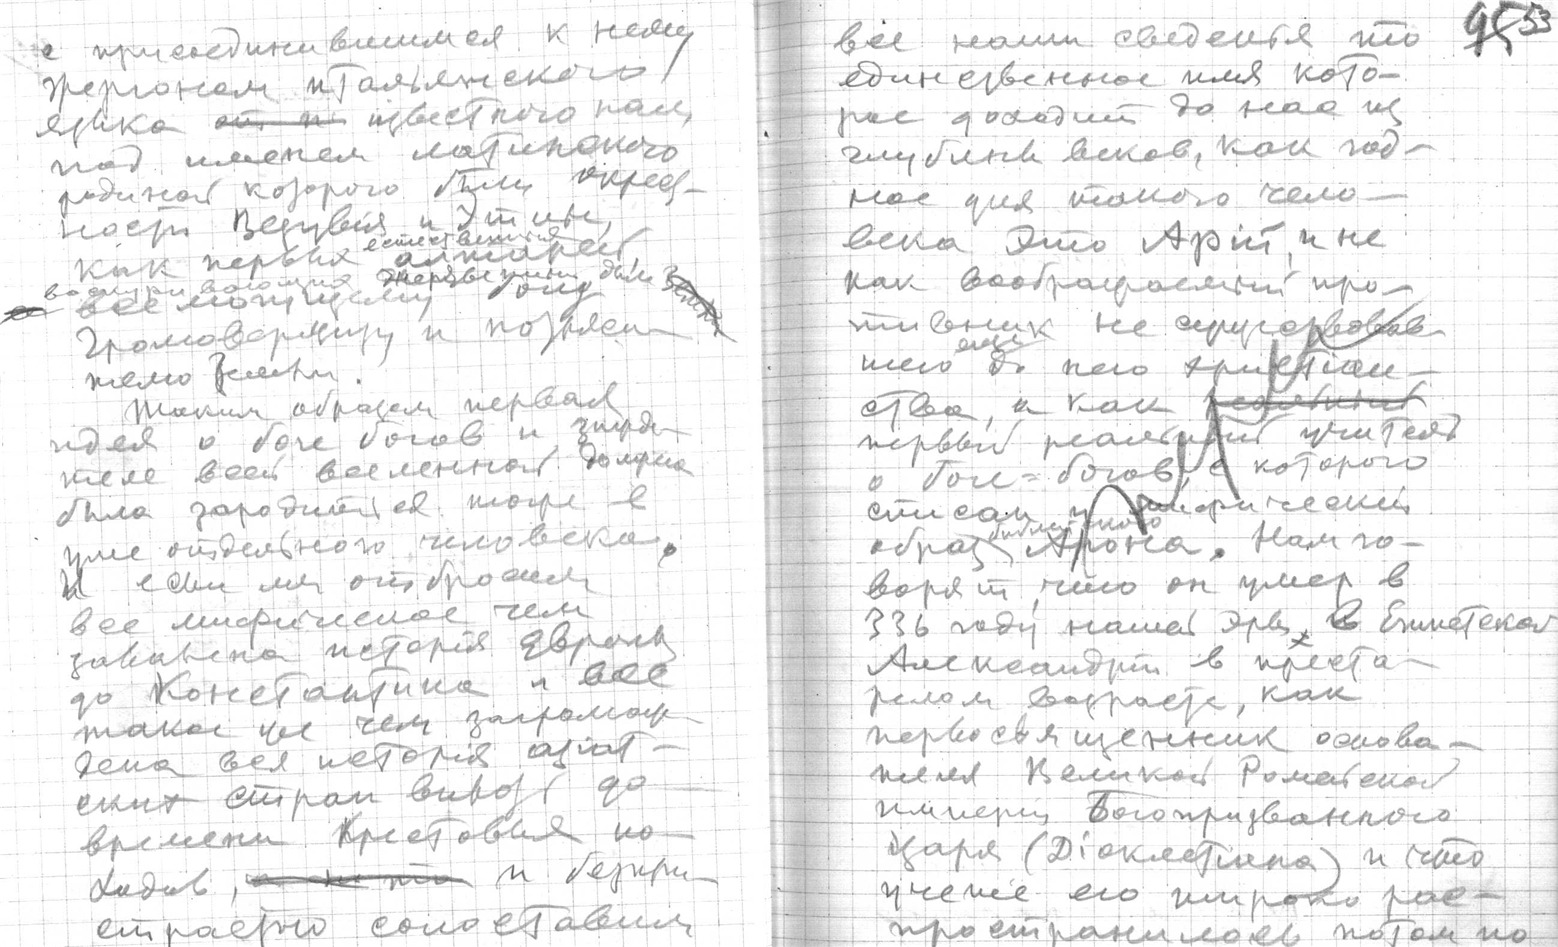 с присоединившимся к нему
жаргоном итальянского
языка известного нам
под именем латинского
родиной которого были окрест-
ности Везувия и Этны,
естественныя
как первыя алтарей,
воскуривающия жертвенный дым
всемогущему богу
Громовержцу и потряса-
телю Земли.
Таким образом первая
идея о боге богов и зиж-
теле всей вселенной должна
была зародиться тоже в
уме отдельного человека.
И если мы отбросим
все мифическое чем
завалена исторія Европы
до Константина и все
такое же чем загромож-
дена вся исторія азіат-
ских стран вплоть до
времени Крестовыя по-
ходов, и безпри-
страстно сопоставим
95 53
все наши сведенія то
единственное имя кото-
рое доходит до нас из
глубины веков, как год-
ное для такого чело-
века это Арій, и не
как воображаемый про-
тивник не существовав-
шего еще до него христіан-
ства, а как
первый реальный учитель
о боге=богов, с которого
списан и мифический
образ библейского Арона. Нам го-
ворят, что он умер в
336 году нашей эры, в Египетской
Александріи в преста-
релом возрасте, как
первосвященник основа-
теля Великой Ромейской
имперіи Богопризванного
Царя (Діоклетіана) и что
ученіе его широко рас-
пространилось потом по